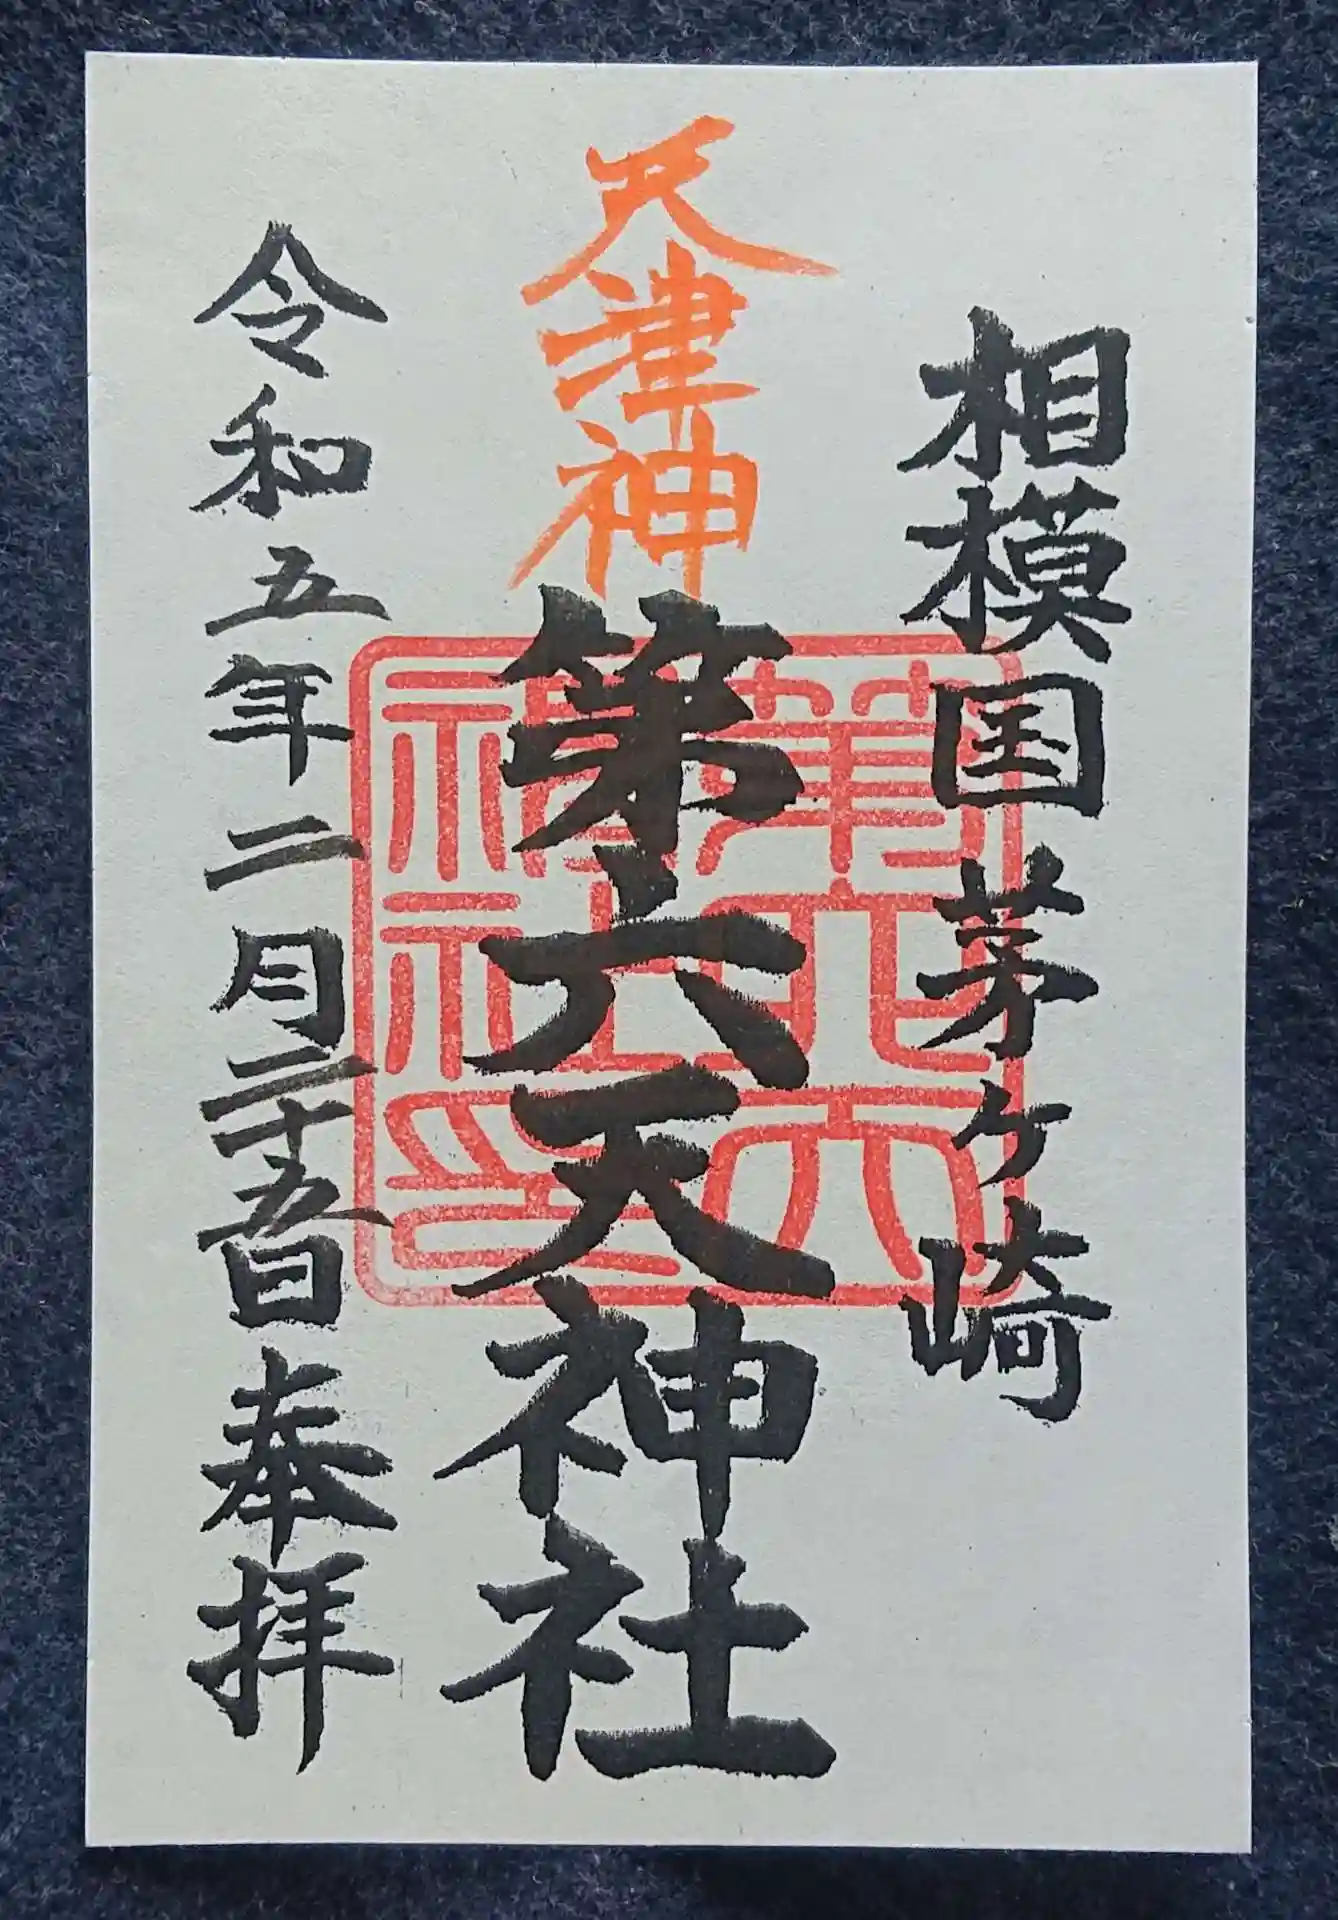 相模国茅ヶ崎
天津神
第六天神社
令和五年二月二十五日奉拝
第六天神社印